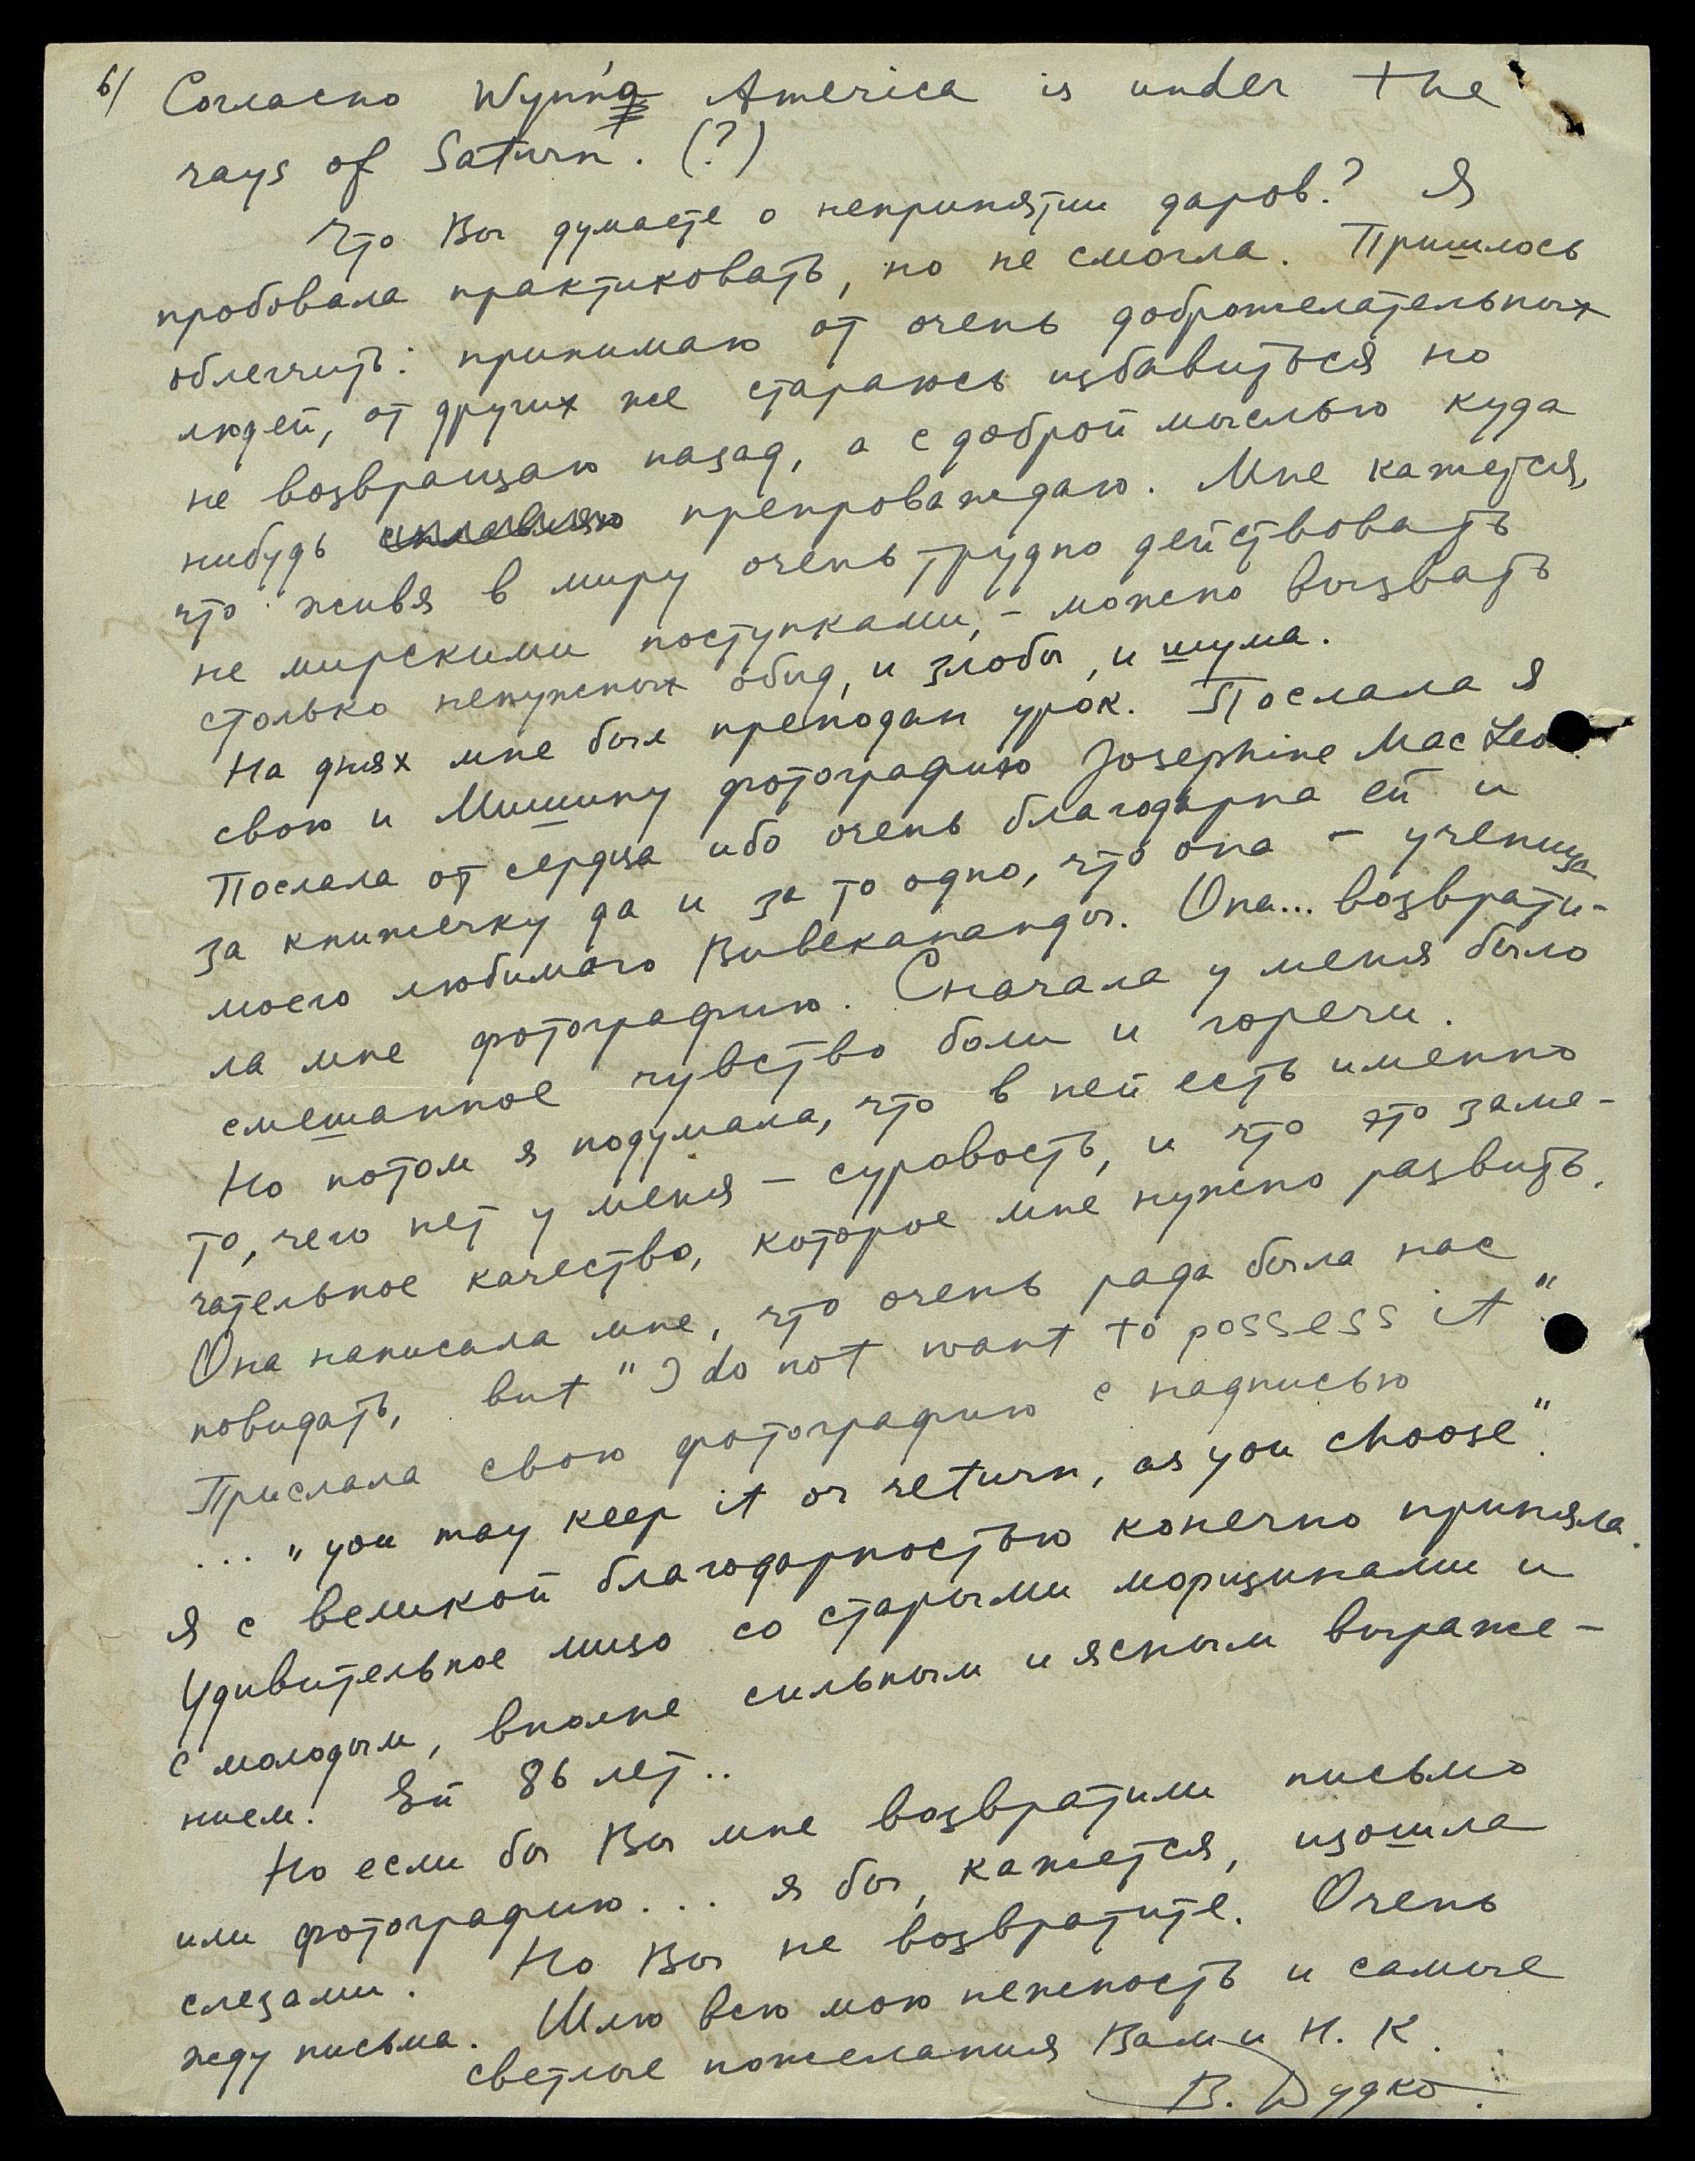 6/ Согласно Wynn'а America is under the
rays of Saturn. (?)
Что Вы думаете о непринятии даров? Я
пробовала практиковать, но не смогла. Пришлось
облегчить: принимаю от очень доброжелательных
людей, от других же стараюсь избавиться но
не возвращаю назад, а с доброй мыслью куда
нибудь препроваждаю. Мне кажется,
что живя в миру очень трудно действовать
не мирскими поступками, - можно вызвать
столько ненужных обид, и злобы, и шума.
На днях мне был преподан урок. Послала я
свою и Мишину фотографию Josephine Mac Leo
Послала от сердца ибо очень благодарна ей и
за книжечку да и за то одно, что она - ученица
моего любимого Вивекананды. Она... возврати-
ла мне фотографию. Сначала у меня было
смешанное чувство боли и горечи.
Но потом я подумала, что в ней есть именно
то, чего нет у меня - суровость, и что это заме-
чательное качество, которое мне нужно развить.
Она написала мне, что очень рада была нас
повидать, but "I do not want to possess it".
Прислала свою фотографию с надписью
... "you may keep it or return, as you choose".
Я с великой благодарностью конечно приняла.
Удивительное лицо со старыми морщинами и
с молодым, вполне сильным и ясным выраже-
нием. Ей 86 лет..
Но если бы Вы мне возвратили письмо
или фотографию... я бы, кажется, изошла
слезами. Но Вы не возвратите. Очень
жду письма. Шлю всю мою нежность и самые
светлые пожелания Вам и Н. К.
В. Дудко.